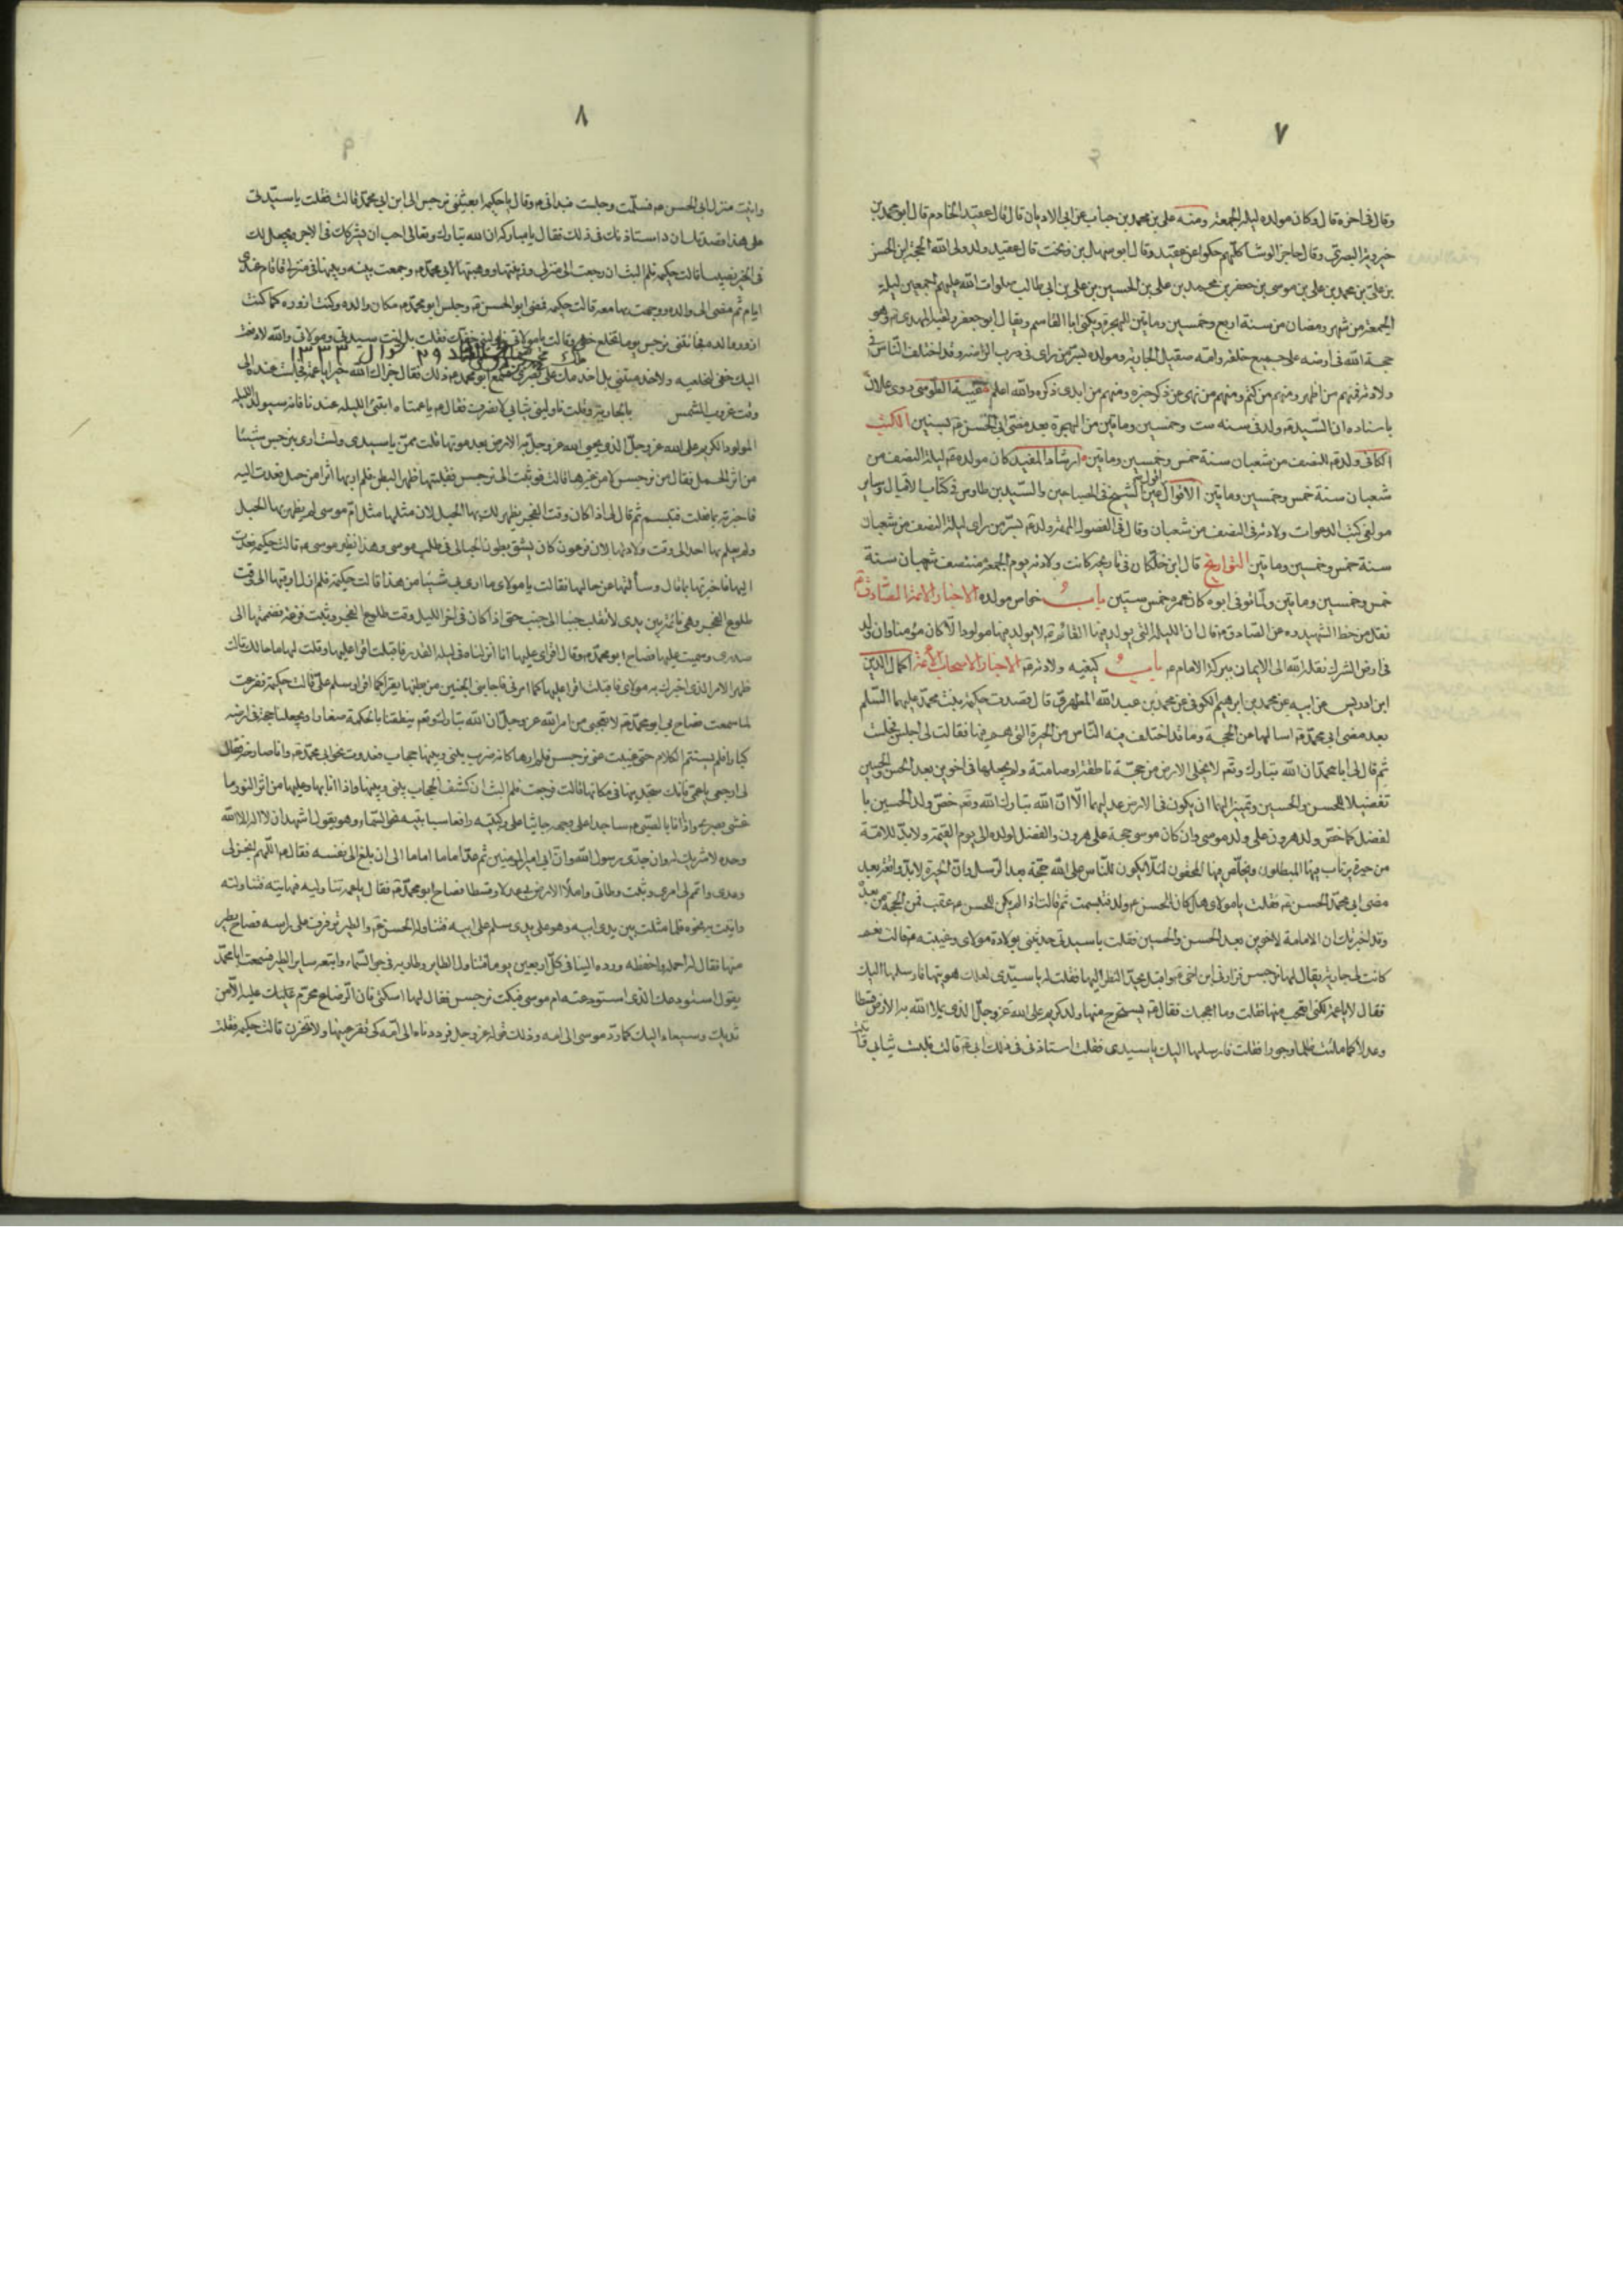 ٧
وقال في اخره قال وكان مولده ليلة الجمعة ومنه علي بن محمد بن حباب عن ابي الاديان قال قال عقيد الخادم قال ابو محمد بن
خيرويه البصري وقال حاجز الوشا كلهم حكوا عن عقيد وقال ابو سهل بن نوبخت قال عقيد ولد ولي الله الحجة بن الحسن
بن علي بن محمد بن علي بن موسى بن جعفر بن محمد بن علي بن الحسين بن علي بن ابي طالب صلوات الله عليهم اجمعين ليلة
الجمعة من شهر رمضان من سنة اربع وخمسين وماتين للهجرة ويكنى ابا القاسم ويقال ابو جعفر ولقبه المهدي وهو
حجة الله في ارضه على جميع خلقه وامه صقيل الجارية ومولده بسر من راى في درب الراضة وقد اختلف الناس في
ولادته فمنهم من اظهر ومنهم من كتم ومنهم من نهى عن ذكر خبره ومنهم من ابدى ذكره والله اعلم غيبة الطوسي روى علان
باسناده ان السيد ولد في سنة ست وخمسين وماتين من الهجرة بعد مضي ابي الحسن بسنتين الكليني
الكافي ولد للنصف من شعبان سنة خمس وخمسين وماتين ارشاد المفيد كان مولده ليلة النصف من
شعبان سنة خمس وخمسين وماتين الاقوال عين الشيخ في المصباحين والسيد بن طاوس في كتاب الاقبال وساير
مولفي كتب الدعوات ولادته في النصف من شعبان وقال في الفصول المهمة ولد بسر من راى ليلة النصف من شعبان
سنة خمس وخمسين وماتين التواريخ قال ابن خلكان في تاريخه كانت ولادته يوم الجمعة منتصف شعبان سنة
خمس وخمسين وماتين ولما توفي ابوه كان عمره خمس سنين باب خواص مولده الاخبار الائمة الصادق
نقل من خط الشهيد عن الصادق قال ان الليلة التي يولد فيها القائم لا يولد فيها مولود الا كان مؤمنا وان ولد
في ارض الشرك نقله الله الى الايمان ببركة الامام باب كيفيه ولادته الاخبار الاصحاب الائمة اكمال الدين
ابن ادريس عن ابيه عن محمد بن ابرهيم الكوفي عن محمد بن عبد الله المطهري قال قصدت حكيمة بنت محمد عليهما السلم
بعد مضي ابي محمد اسالها عن الحجة وما قد اختلف فيه الناس من الحيرة التي هم فيها فقالت لي اجلس فجلست
ثم قال لي يا محمد ان الله تبارك وتع لا يخلي الارض من حجة ناطقة او صامتة ولم يجعلها في اخوين بعد الحسن والحسين
تفضيلا للحسن والحسين وتمييزا لهما ان يكون في الارض عديلهما الا ان الله تبارك الله وتع خص ولد الحسين با
لفضل كما خص ولد هرون على ولد موسى وان كان موسى حجة على هرون والفضل لولده الى يوم القيمة ولا بد للامة
من حيرة يرتاب فيها المبطلون ويخلص فيها المحقون لئلا يكون للناس على الله حجة بعد الرسل وان الحيرة لا بد واقعة بعد
مضي ابي محمد الحسن فقلت يا مولاتي هل كان للحسن ولد فتبسمت ثم قالت اذا لم يكن للحسن عقب فمن الحجة من بعده
وقد اخبرتك ان الامامة لاخوين بعد الحسن والحسين فقلت يا سيدتي حدثيني بولادة مولاي وغيبته قالت نعم
كانت لي جارية يقال لها نرجس فزارني ابن اخي واقبل يحد النظر اليها فقلت له يا سيدي لعلك هويتها فارسلها اليك
فقال لا يا عمة لكني اتعجب منها فقلت وما اعجبك فقال سيخرج منها ولد كريم على الله عز وجل الذي يملا الله به الارض قسطا
وعدلا كما ملئت ظلما وجورا فقلت فارسلها اليك يا سيدي فقلت استاذني في ذلك ابي قالت فلبست ثيابي
٨
واتيت منزل ابي الحسن فسلمت وجلست فبداني وقال يا حكيمة ابعثي نرجس الى ابني ابي محمد قالت فقلت يا سيدي
على هذا قصدتك ان استاذنك في ذلك فقال يا مباركة ان الله تبارك وتعالى احب ان يشركك في الاجر ويجعل لك
في الخير نصيبا قالت حكيمة فلم البث ان رجعت الى منزلي وزينتها ووهبتها لابي محمد وجمعت بينه وبينها في منزلي فاقام عندي
ايام ثم مضى الى والده ووجهت بها معه قالت حكيمة فمضى ابو الحسن وجلس ابو محمد مكان والده وكنت ازوره كما كنت
ازور والده فجائتني نرجس يوما تخلع خفي وقالت يا مولاتي ناوليني خفك فقلت بل انت سيدتي ومولاتي والله لا دفعت
٢٩ شوال ١٣٣٣
اليك خفي لتخلعيه ولا خدمتيني بل اخدمك على بصري فسمع ابو محمد ذلك فقال جزاك الله خيرا يا عمة فجلست عنده الى
وقت غروب الشمس بالجارية وقلت ناوليني ثيابي لانصرف فقال يا عمتاه ابيتي الليلة عندنا فانه سيولد الليلة
المولود الكريم على الله عز وجل الذي يحيي الله عز وجل به الارض بعد موتها قلت ممن يا سيدي ولست ارى بنرجس شيئا
من اثر الحمل فقال من نرجس لا من غيرها قالت فوثبت الى نرجس فقلبتها ظهر البطن فلم ار بها اثرا من حبل فعدت اليه
فاخبرته بما فعلت فتبسم ثم قال لي اذا كان وقت الفجر يظهر لك بها الحبل لان مثلها مثل ام موسى لم يظهر بها الحبل
ولم يعلم بها احد الى وقت ولادتها لان فرعون كان يشق بطون الحبالى في طلب موسى وهذا نظير موسى قالت حكيمة فعدت
اليها فاخبرتها بما قال وسألتها عن حالها فقالت يا مولاتي ما ارى بي شيئا من هذا قالت حكيمة فلم ازل ارقبها الى وقت
طلوع الفجر وهي نائمة بين يدي لا تقلب جنبا الى جنب حتى اذا كان في اخر الليل وقت طلوع الفجر وثبت فزعة فضممتها الى
صدري وسميت عليها فصاح ابو محمد وقال اقراي عليها انا انزلناه في ليلة القدر فاقبلت اقرا عليها وقلت لها ما حالك قالت
ظهر الامر الذي اخبرك به مولاي فاقبلت اقرا عليها كما امرني فاجابني الجنين من بطنها يقرا كما اقرا وسلم علي قالت حكيمة ففزعت
لما سمعت فصاح بي ابو محمد لا تعجبي من امر الله عز وجل ان الله تبارك وتع ينطقنا بالحكمة صغارا ويجعلنا حجة في ارضه
كبارا فلم يستتم الكلام حتى غيبت عني نرجس فلم ارها كانه ضرب بيني وبينها حجاب فعدوت نحو ابي محمد وانا صارخة فقال
لي ارجعي يا عمة فانك ستجديها في مكانها قالت فرجعت فلم البث ان كشف الحجاب بيني وبينها واذا انا بها وعليها من اثر النور ما
غشي بصري واذا انا بالصبي ساجدا على وجهه جاثيا على ركبتيه رافعا سبابتيه نحو السماء وهو يقول اشهد ان لا اله الا الله
وحده لا شريك له وان جدي رسول الله وان ابي امير المومنين ثم عد اماما اماما الى ان بلغ الى نفسه فقال اللهم انجز لي
وعدي واتمم لي امري وثبت وطاتي واملأ الارض بي عدلا وقسطا فصاح ابو محمد فقال يا عمة تناوليه فهاتيه فتناولته
واتيت به نحوه فلما مثلت بين يدي ابيه وهو على يدي سلم على ابيه فتناوله الحسن والطير ترفرف على راسه فصاح بطير
منها فقال له احمله واحفظه ورده الينا في كل اربعين يوما فتناوله الطاير وطار به في جو السماء واتبعه ساير الطير فسمعت ابا محمد
يقول استودعك الذي استودعته ام موسى فبكت نرجس فقال لها اسكتي فان الرضاع محرم عليك عليه الا من
ثديك وسيعاد اليك كما رد موسى الى امه وذلك قوله عز وجل فرددناه الى امه كي تقر عينها ولا تحزن قالت حكيمة فقلت